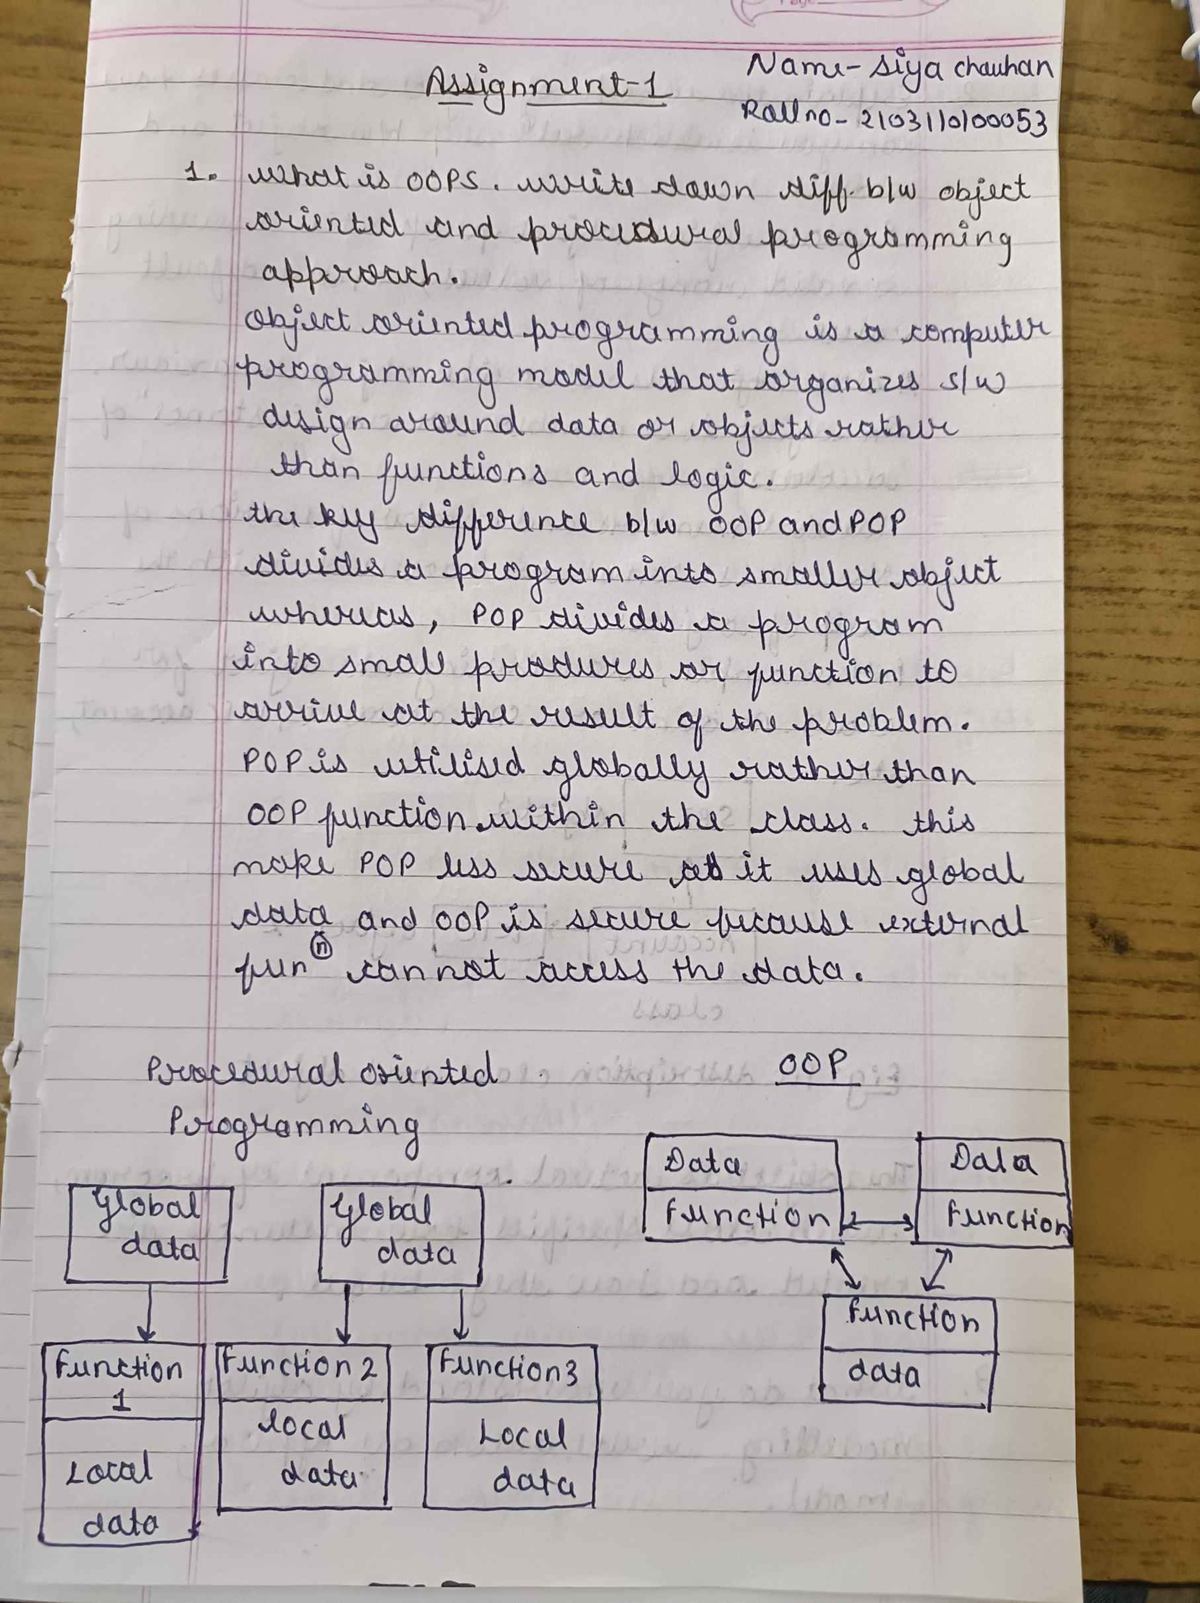 Assignment-1
Name- Siya chauhan
Rollno- 2103110100053
1. What is OOPS. write down diff. b/w object
oriented and procedural programming
approach.
object oriented programming is a computer
programming model that organizes s/w
design around data or objects rather
than functions and logic.
the key difference b/w OOP and POP
divides a program into smaller object
whereas, POP divides a program
into small produres or function to
arrive at the result of the problem.
POP is utilised globally rather than
OOP function within the class. this
make POP less secure as it uses global
data and OOP is secure because external
fun(n) cannot access the data.
Procedural oriented
Programming
OOP
Global
data
Global
data
Function
1
Local
data
Function 2
Local
data
Function 3
Local
data
Data
Function
Data
Function
Function
data